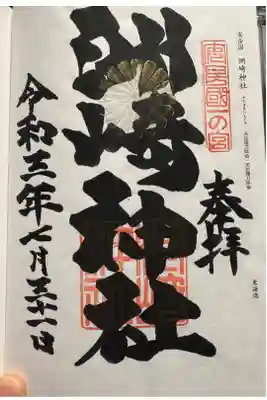 安房国 洲崎神社
安房國一の宮
奉拝
洲崎神社
令和三年七月三十一日